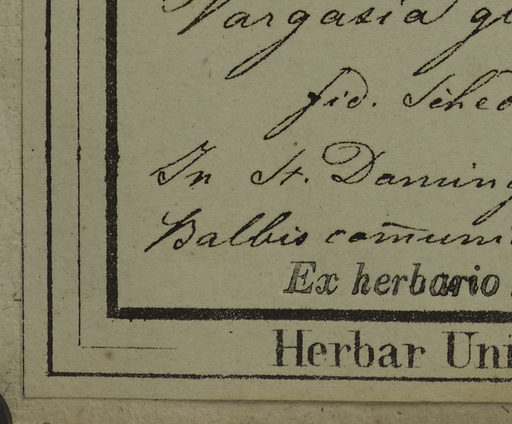 Vargasia gu
fid. Sched
In St. Doming
Balbis com̄uni
Ex herbario
Herbar Uni